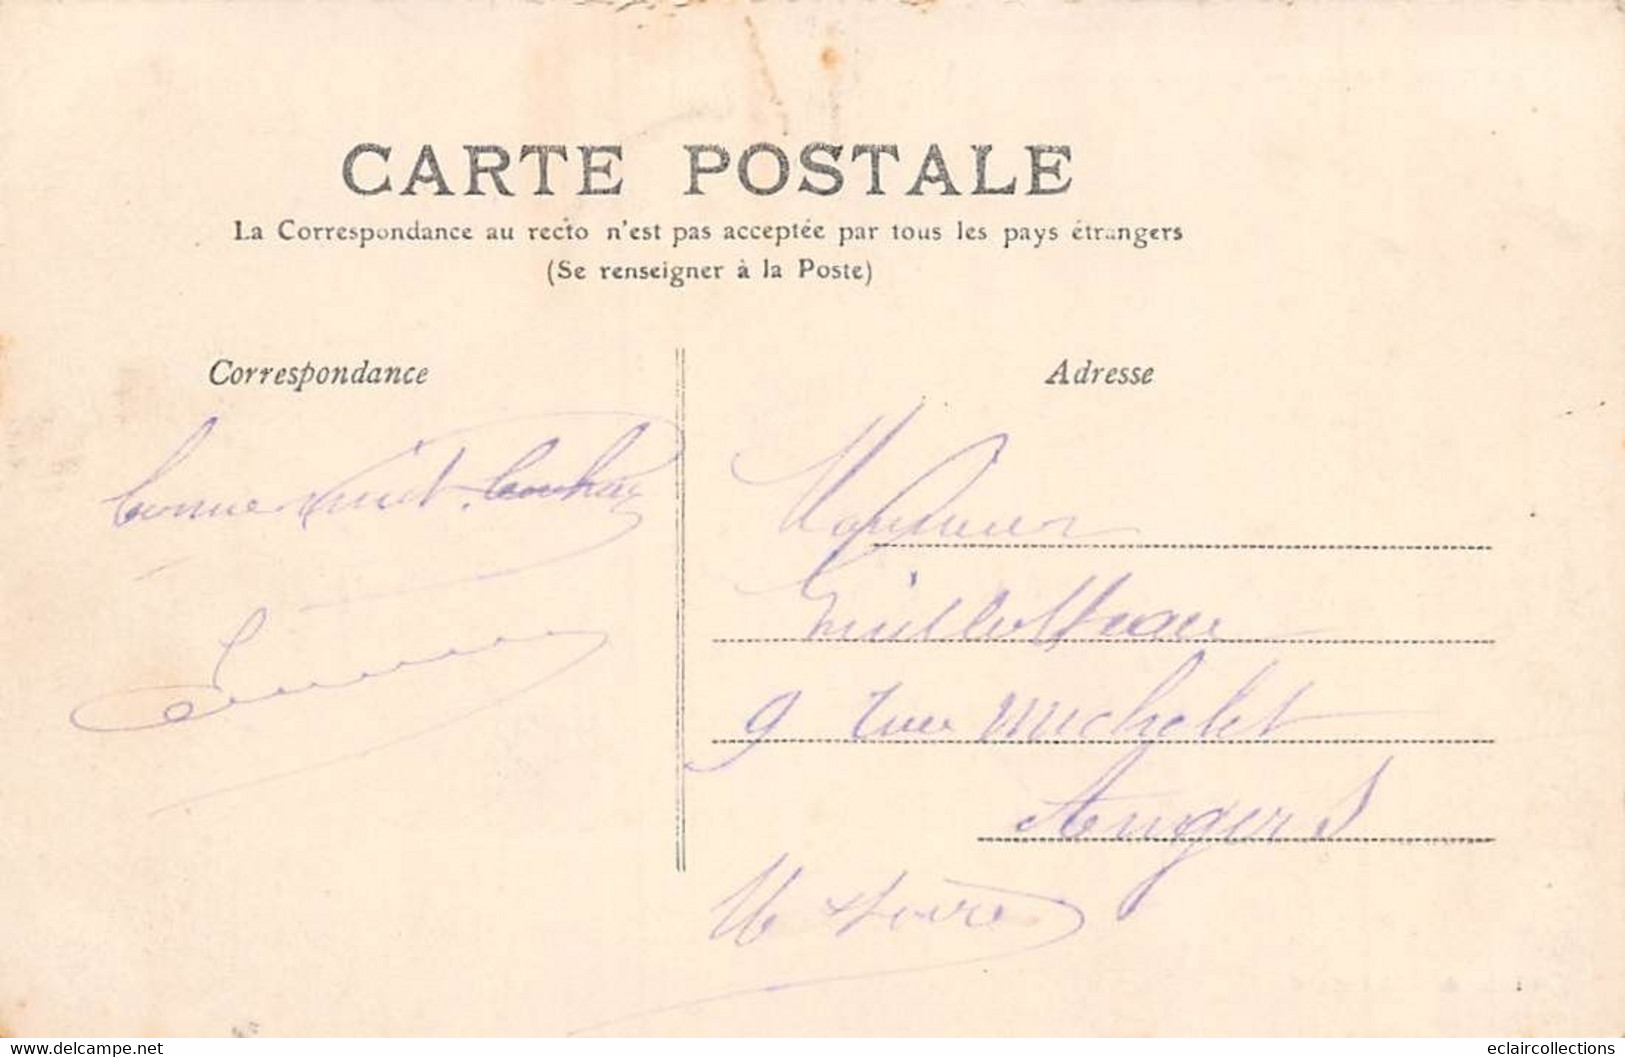 CARTE POSTALE
La Correspondance au recto n'est pas acceptée par tous les pays étrangers
(Se renseigner à la Poste)
Correspondance
Adresse
bonne nuit.
Monsieur
Guillotteau
9 rue Michelet
Angers
M & Loire
www.delcampe.net
eclaircollections